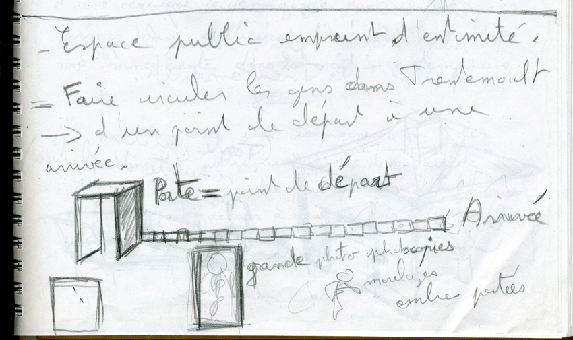 - Espace public empreint d'entimité.
= Faire circuler les gens dans Trentemoult
→ d'un point de départ à une
arrivée.
Porte = point de départ
Arrivée
grande photo
ombres portées